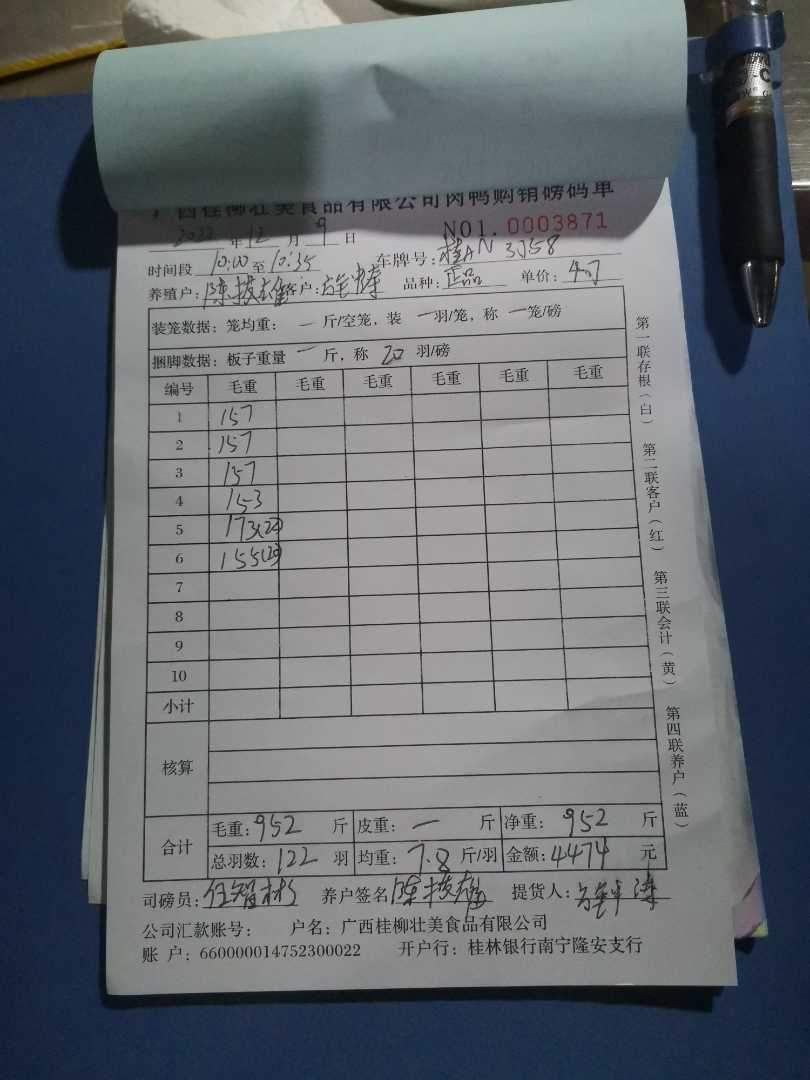 广西桂柳壮美食品有限公司肉鸭购销磅码单
2022 年 12 月 9 日 NO1. 0003871
时间段 10:00 至 10:35 车牌号: 桂AN
养殖户: 陈 客户: 品种: 正品 单价: 4.7
装笼数据: 笼均重: — 斤/空笼, 装 — 羽/笼, 称 — 笼/磅
捆脚数据: 板子重量 — 斤, 称 20 羽/磅
编号 毛重 毛重 毛重 毛重 毛重 毛重
1 157
2 157
3 157
4 153
5 173(22)
6 155(20)
7
8
9
10
小计
核算
合计 毛重: 952 斤 皮重: — 斤 净重: 952 斤
总羽数: 122 羽 均重: 7.8 斤/羽 金额: 4474 元
司磅员: 任智彬 养户签名 陈 提货人:
公司汇款账号: 户名: 广西桂柳壮美食品有限公司
账 户: 660000014752300022 开户行: 桂林银行南宁隆安支行
第一联存根(白) 第二联客户(红) 第三联会计(黄) 第四联养户(蓝)